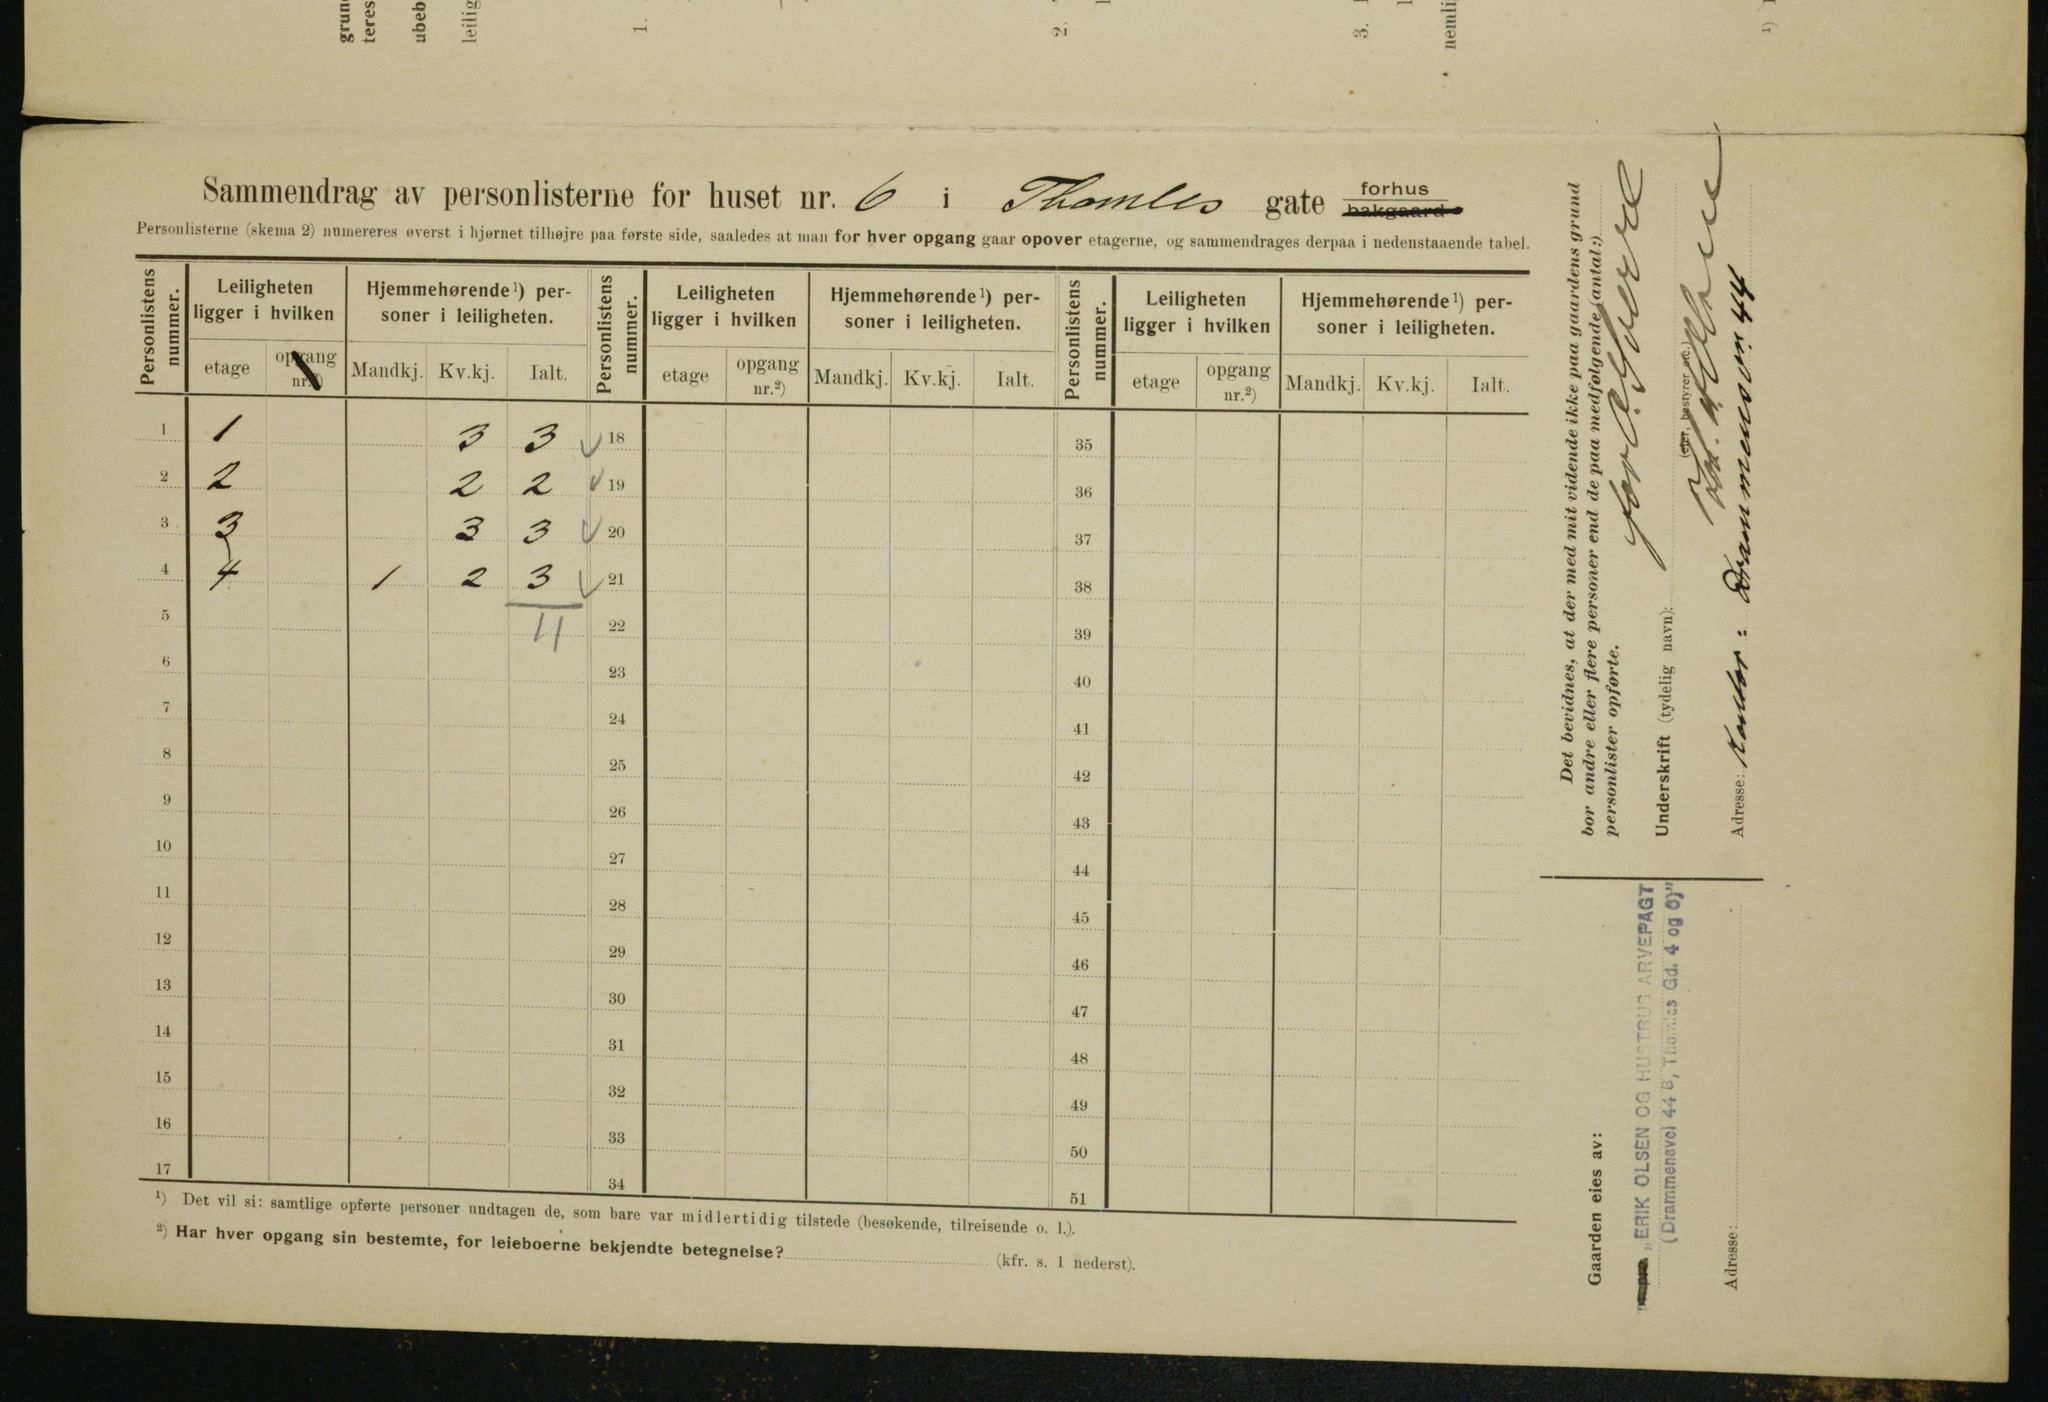 grun
teres
ubeb
leilig
1.
2.
3.
nemli
1)
Sammendrag av personlisterne for huset nr. 6 i Thomles gate forhus
bakgaard
Personlisterne (skema 2) numereres øverst i hjørnet tilhøjre paa første side, saaledes at man for hver opgang gaar opover etagerne, og sammendrages derpaa i nedenstaaende tabel.
Personlistens nummer. Leiligheten ligger i hvilken Hjemmehørende 1) personer i leiligheten. Personlistens nummer. Leiligheten ligger i hvilken Hjemmehørende 1) per-soner i leiligheten. Personlistens nummer. Leiligheten ligger i hvilken Hjemmehørende 1) per-soner i leiligheten.
etage opgang nr.2) Mandkj. Kv.kj. Ialt. etage opgang nr.2) Mandkj. Kv.kj. Ialt. etage opgang nr.2) Mandkj. Kv.kj. Ialt.
1 1 3 3 18 35
2 2 2 2 19 36
3 3 3 3 20 37
4 4 1 2 3 21 38
5 11 22 39
6 23 40
7 24 41
8 25 42
9 26 43
10 27 44
11 28 45
12 29 46
13 30 47
14 31 48
15 32 49
16 33 50
17 34 51
1) Det vil si: samtlige opførte personer undtagen de, som bare var midlertidig tilstede (besøkende, tilreisende o. l.).
2) Har hver opgang sin bestemte, for leieboerne bekjendte betegnelse? (kfr. s. 1 nederst).
Det bevidnes, at der med mit vidende ikke paa gaardens grund
bor andre eller flere personer end de paa medfølgende (antal:)
personlister opførte.
Underskrift (tydelig navn):
(eier, bestyrer etc.)
Adresse: Kontor: Drammensvn. 44
Gaarden eies av:
„ERIK OLSEN OG HUSTRUS ARVEPAGT
(Drammensvei 44 B, Thomles Gd. 4 og 6)"
Adresse: